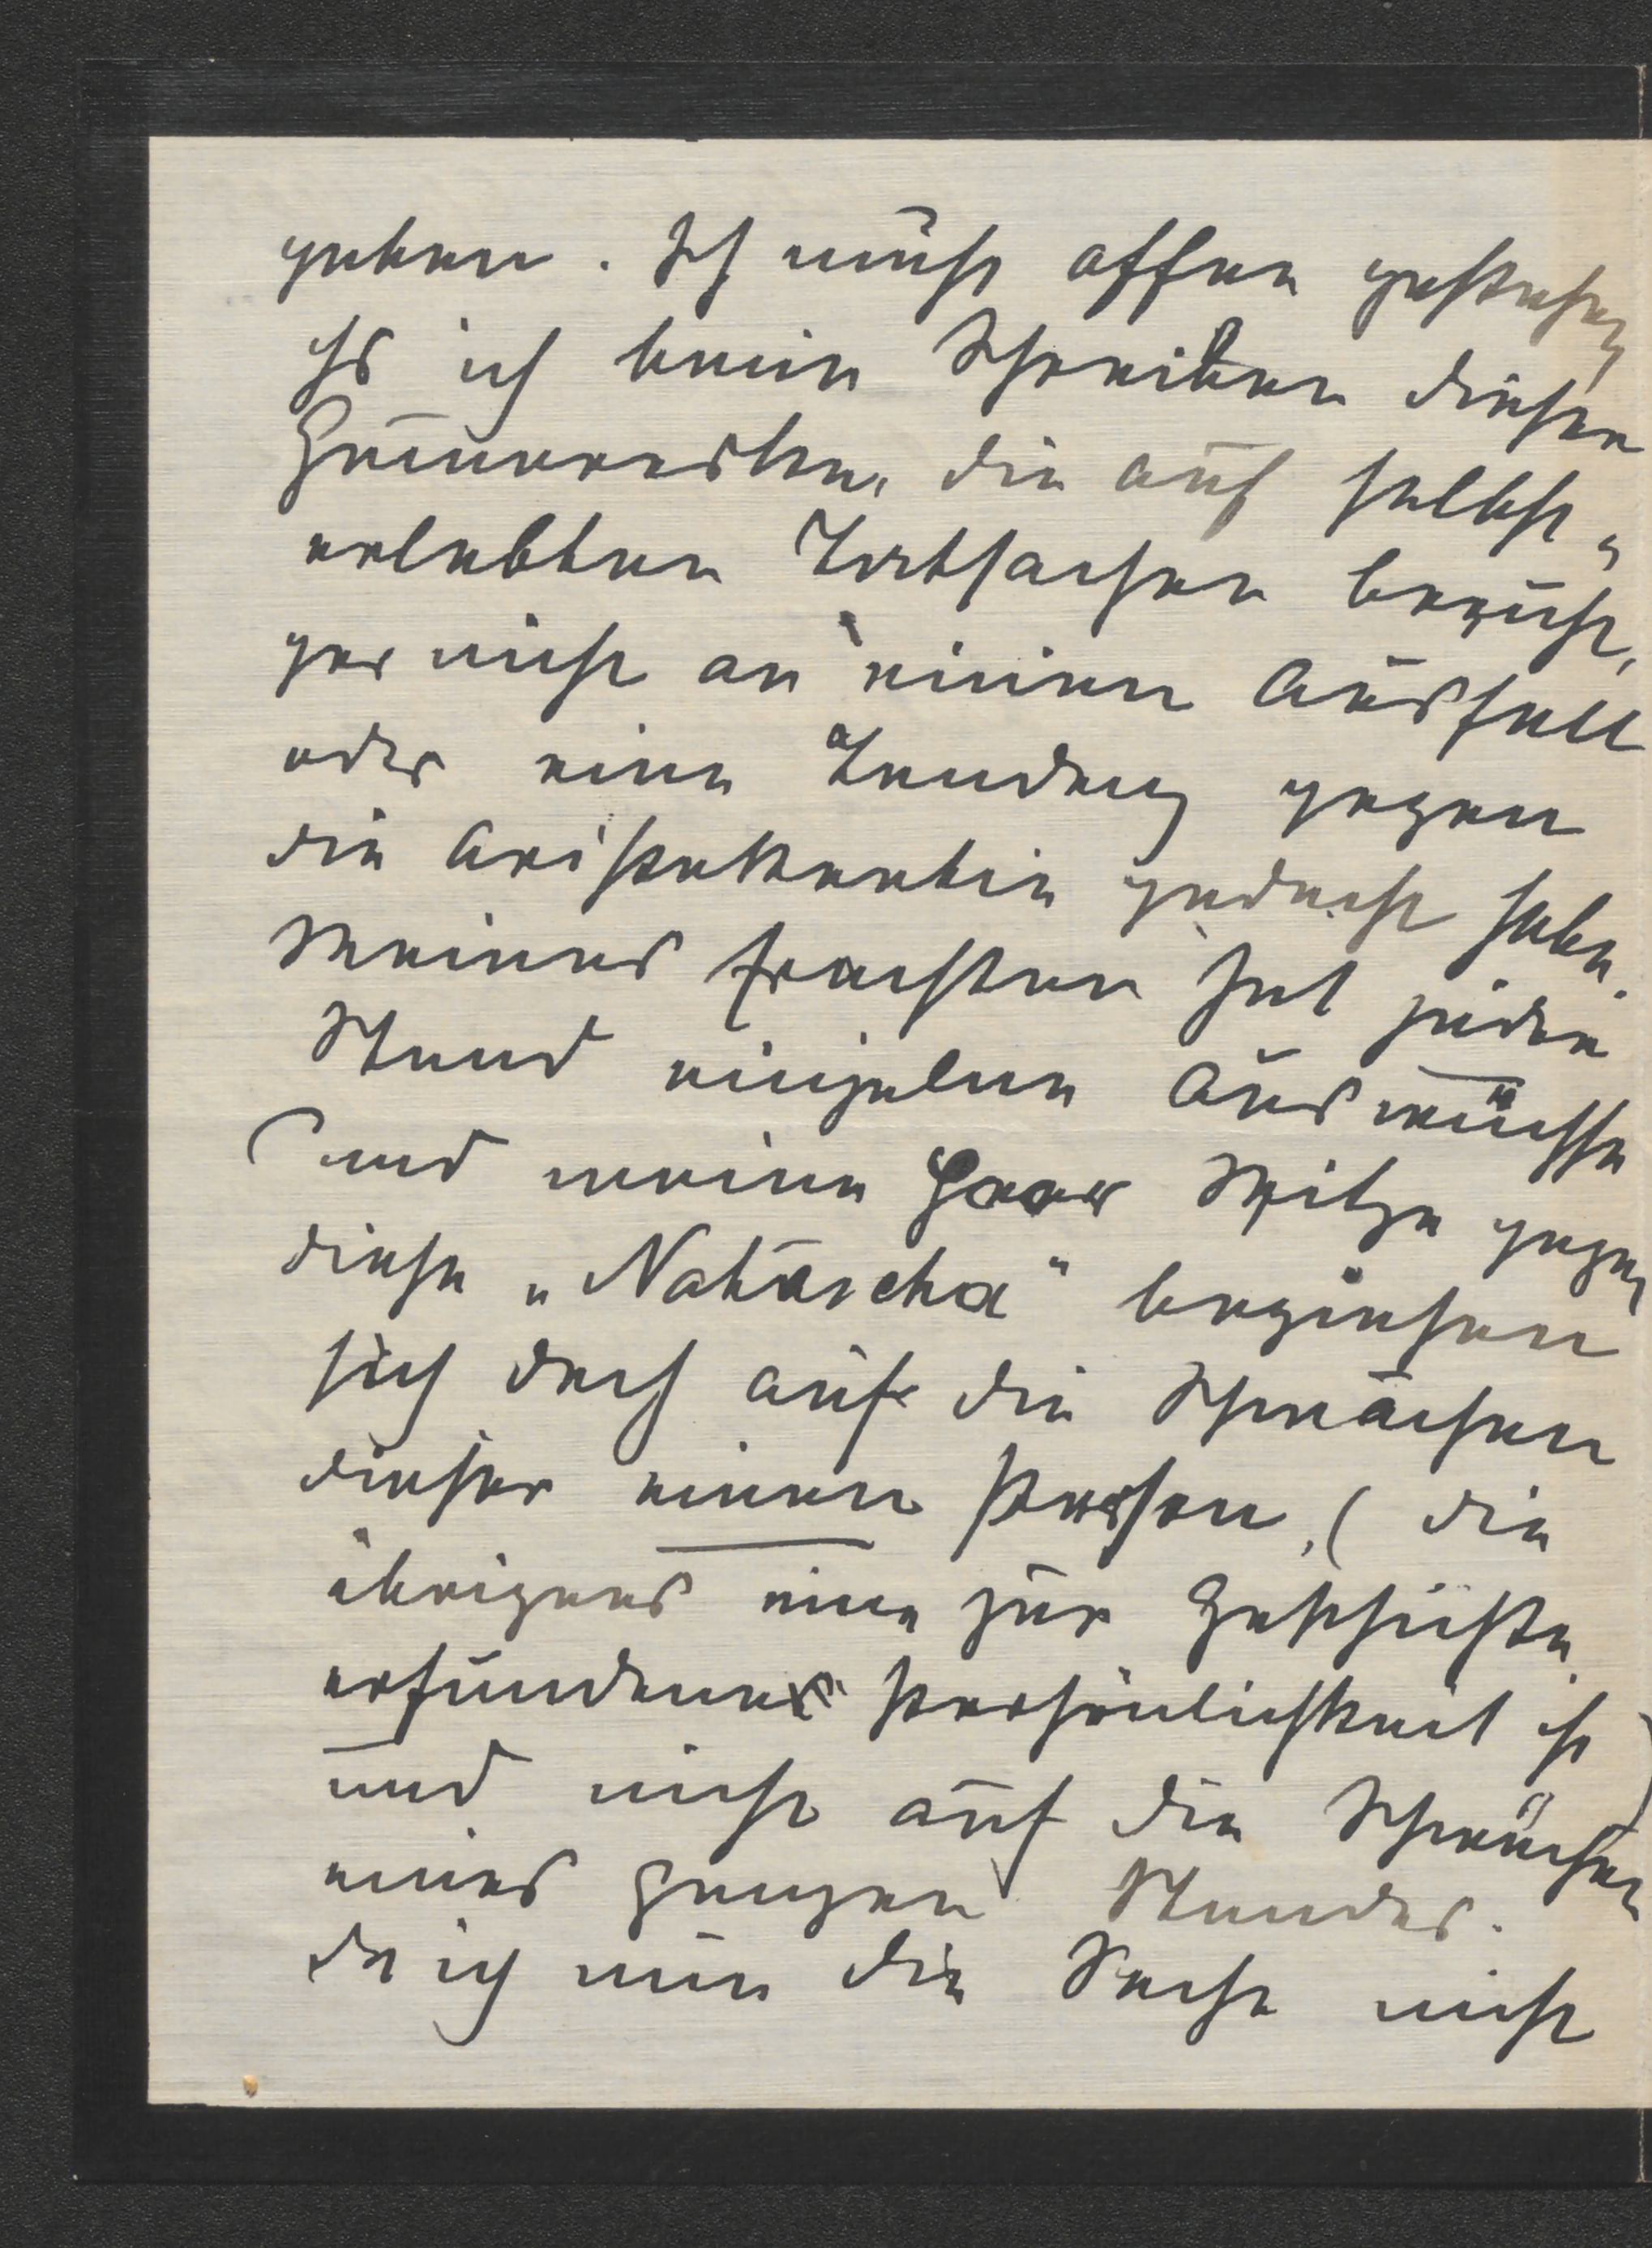 geben. Ich muß offen gestehen,
daß ich beim Schreiben dieser
Humoreske, die auf selbst-
erlebten Tatsachen beruht,
gar nicht an einen Ausfall
oder eine Tendenz gegen
die Aristokratie gedacht habe.
Meines Erachtens hat jeder
Stand einzelne Auswüchse
und meine paar Spitze gegen
diese „Natascha" beziehen
sich doch auf die Schwächen
dieser einen Person, (die
übrigens eine zur Geschichte
erfundene Persönlichkeit ist)
und nicht auf die Schwächen
eines ganzen Standes.
Da ich nun die Sache nicht